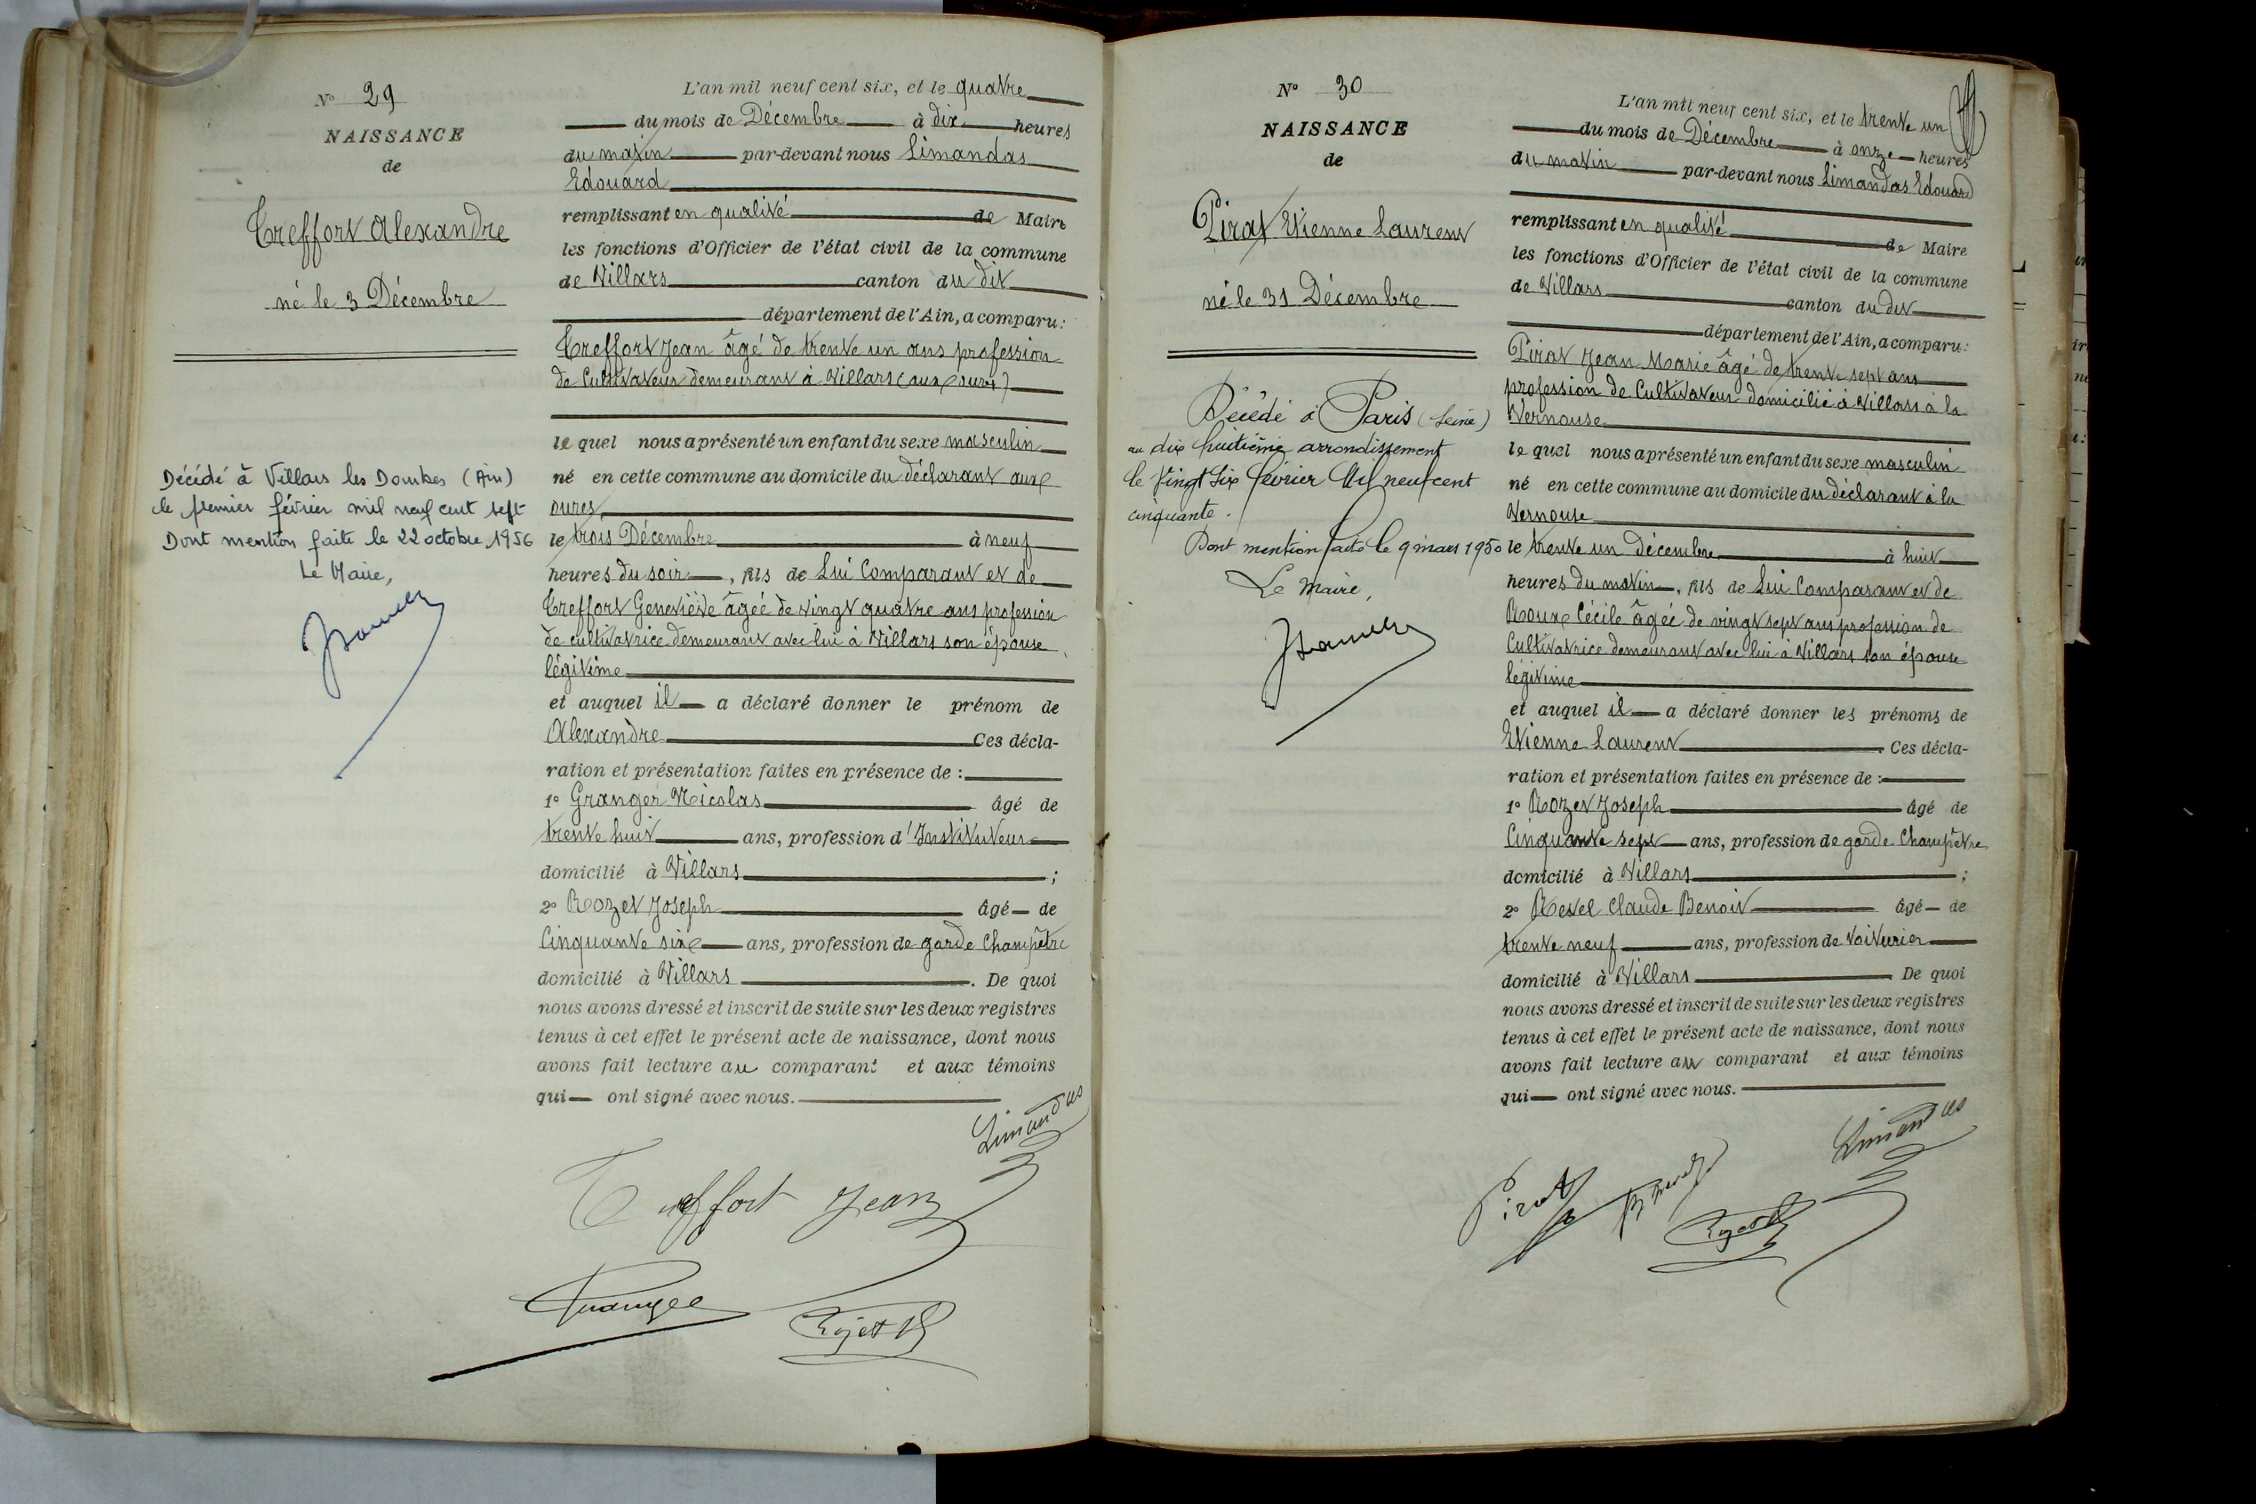 N° 29
NAISSANCE
de
Treffort Alexandre
né le 3 Décembre
Décédé à Villars les Dombes (Ain)
le premier février mil neuf cent sept
Dont mention faite le 22 octobre 1956
Le Maire,
L'an mil neuf cent six, et le quatre
du mois de Décembre à dix heures
du matin par-devant nous Limandas
Edouard
remplissant en qualité de Maire
les fonctions d'Officier de l'état civil de la commune
de Villars canton du dit
département de l'Ain, a comparu :
Treffort Jean âgé de trente un ans profession
de Cultivateur demeurant à Villars (aux oures)
le quel nous a présenté un enfant du sexe masculin
né en cette commune au domicile du déclarant aux
oures
le trois Décembre à neuf
heures du soir, fils de Lui Comparant et de
Treffort Geneviève âgée de vingt quatre ans profession
de cultivatrice demeurant avec lui à Villars son épouse
légitime
et auquel il a déclaré donner le prénom de
Alexandre Ces décla-
ration et présentation faites en présence de :
1° Granger Nicolas âgé de
trente huit ans, profession d'Instituteur
domicilié à Villars ;
2° Rozet Joseph âgé de
Cinquante six ans, profession de garde Champêtre
domicilié à Villars. De quoi
nous avons dressé et inscrit de suite sur les deux registres
tenus à cet effet le présent acte de naissance, dont nous
avons fait lecture au comparant et aux témoins
qui ont signé avec nous.
Limandas
Treffort Jean
Granger
Rozet
N° 30
NAISSANCE
de
Pirat Etienne Laurent
né le 31 Décembre
Décédé à Paris (Seine)
au dix huitième arrondissement
le Vingt Six février Mil neuf cent
cinquante.
Dont mention faite le 9 mars 1950
Le Maire,
L'an mil neuf cent six, et le trente un
du mois de Décembre à onze heures
du matin par-devant nous Limandas Edouard
remplissant en qualité de Maire
les fonctions d'Officier de l'état civil de la commune
de Villars canton du dit
département de l'Ain, a comparu :
Pirat Jean Marie âgé de trente sept ans
profession de Cultivateur domicilié à Villars à la
Vernouse
le quel nous a présenté un enfant du sexe masculin
né en cette commune au domicile du déclarant à la
Vernouse
le trente un décembre à huit
heures du matin, fils de Lui Comparant et de
Roux Cécile âgée de vingt sept ans profession de
Cultivatrice demeurant avec lui à Villars son épouse
légitime
et auquel il a déclaré donner les prénoms de
Etienne Laurent. Ces décla-
ration et présentation faites en présence de :
1° Rozet Joseph âgé de
Cinquante sept ans, profession de garde Champêtre
domicilié à Villars ;
2° Revel Claude Benoit âgé de
trente neuf ans, profession de Voiturier
domicilié à Villars De quoi
nous avons dressé et inscrit de suite sur les deux registres
tenus à cet effet le présent acte de naissance, dont nous
avons fait lecture au comparant et aux témoins
qui ont signé avec nous.
Limandas
Pirat
Rozet